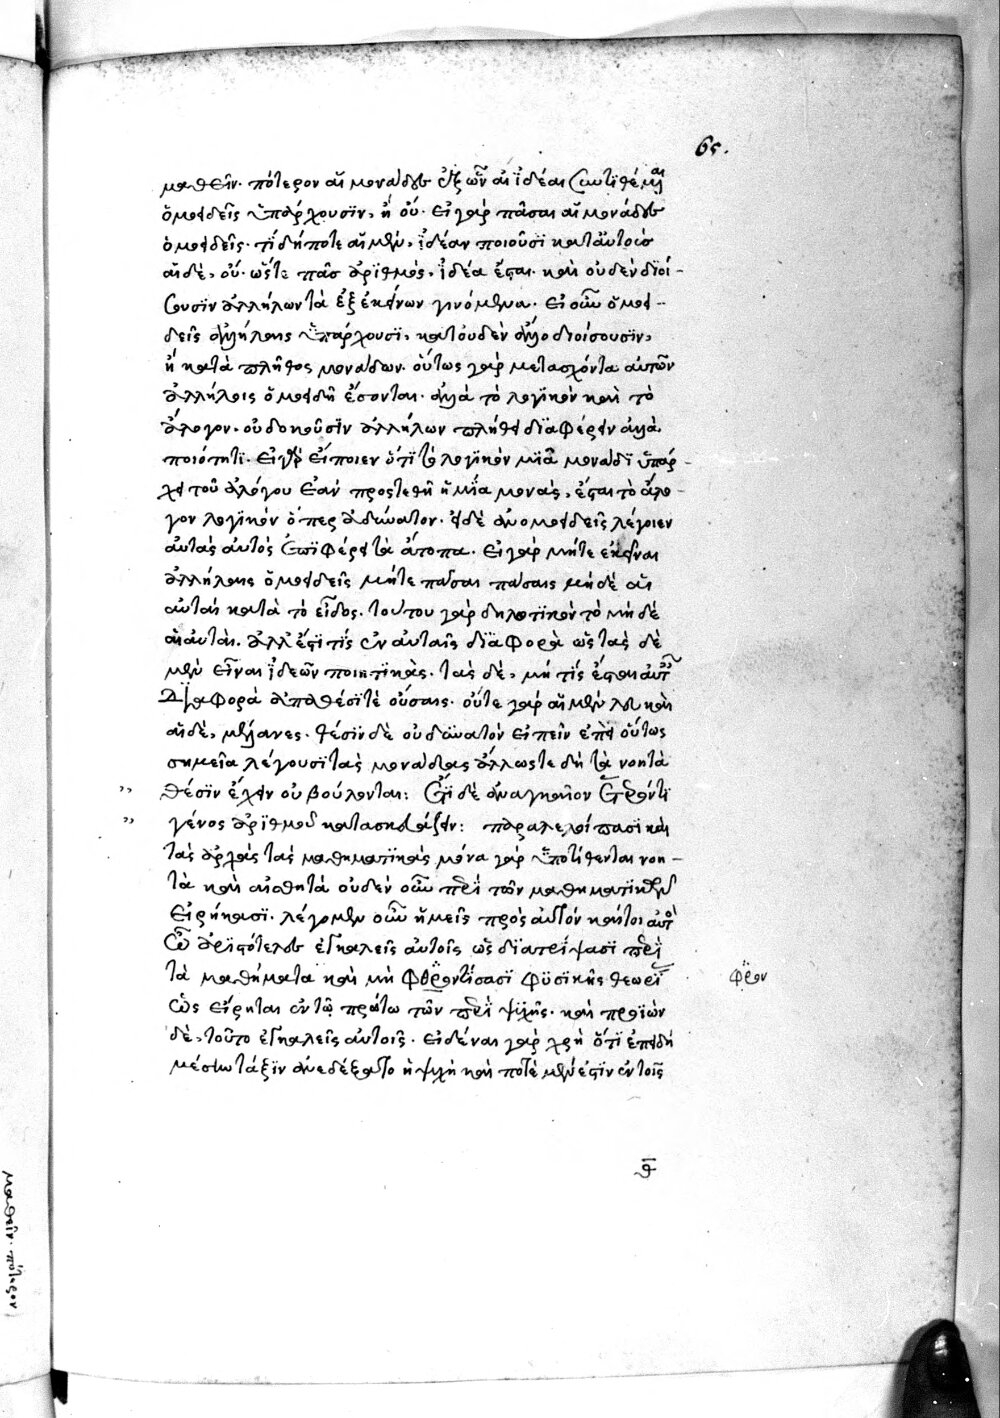 65.
μαθεῖν· πότερον αἱ μονάδες ἐξ ὧν αἱ ἰδέαι συντίθενται
ὁμοειδεῖς ὑπάρχουσιν, ἢ οὔ· εἰ γὰρ πᾶσαι αἱ μονάδες
ὁμοειδεῖς· τί δήποτε αἱ μὲν, ἰδέαν ποιοῦσι κατ' αὐτοὺς
αἱ δὲ, οὔ· ὥστε πᾶς ἀριθμὸς, ἰδέα ἔσται· καὶ οὐδὲν διοί-
σουσιν ἀλλήλων τὰ ἐξ ἐκείνων γινόμενα· εἰ οὖν ὁμοει-
δεῖς ἀλλήλαις ὑπάρχουσι, κατ' οὐδὲν ἄλλο διοίσουσιν,
ἢ κατὰ πλῆθος μονάδων· οὕτως γὰρ μετασχόντα αὐτῶν
ἀλλήλοις ὁμοειδῆ ἔσονται· ἀλλὰ τὸ λογικὸν καὶ τὸ
ἄλογον· οὐ δοκοῦσιν ἀλλήλων πλήθει διαφέρειν ἀλλὰ
ποιότητι· εἰ γὰρ εἴποιεν ὅτι τὸ λογικὸν μιᾶ μονάδι ὑπάρ-
χει τοῦ ἀλόγου ἐὰν προστεθῆ ἡ μία μονὰς, ἔσται τὸ ἄλο-
γον λογικὸν ὅπερ ἀδύνατον· εἰ δὲ ἀνομοειδεῖς λέγοιεν
αὐτὰς αὐτὸς ἐπιφέρει τὰ ἄτοπα· εἰ γὰρ μήτε ἐκεῖναι
ἀλλήλαις ὁμοειδεῖς μήτε πᾶσαι πάσαις μηδὲ αἱ
αὐταὶ κατὰ τὸ εἶδος· τούτου γὰρ δηλωτικὸν τὸ μηδὲ
αἱ αὐταὶ· ἀλλ' ἔστι τίς ἐν αὐταῖς διαφορὰ ὡς τὰς δὲ
μὲν εἶναι ἰδεῶν ποιητικὰς· τὰς δὲ, μή τίς ἔσται αὐτῶν
διαφορὰ ἀπαθέσι τὲ οὔσαις· οὔτε γὰρ αἱ μὲν λευκαὶ
αἱ δὲ, μέλανες· θέσιν δὲ οὐ δυνατὸν εἰπεῖν ἐπεὶ οὕτως
σημεῖα λέγουσι τὰς μονάδας ἄλλως τε δὴ τὰ νοητὰ
θέσιν ἔχειν οὐ βούλονται: ἔτι δὲ ἀναγκαῖον ἕτερόν τι
γένος ἀριθμοῦ κατασκευάζειν: παραλελοίπασι καὶ
τὰς ἀρχὰς τὰς μαθηματικὰς μόνα γὰρ ὑποτίθενται νοη-
τὰ καὶ αἰσθητὰ οὐδὲν οὖν περὶ τῶν μαθηματικῶν
εἰρήκασι· λέγομεν οὖν ἡμεῖς πρὸς αὐτόν καίτοι αὐτὸ
ὦ ἀριστότελες ἐγκαλεῖς αὐτοῖς ὡς διατρίψασι περὶ
τὰ μαθήματα καὶ μὴ φροντίσασι φυσικῆς θεωρί
φρον
ὡς εἴρηται ἐν τῶ πρώτω τῶν περὶ ψυχῆς· καὶ προϊὼν
δὲ, τοῦτο ἐγκαλεῖς αὐτοῖς· εἰδέναι γὰρ χρὴ ὅτι ἐπειδὴ
μέσην τάξιν ἀνεδέξατο ἡ ψυχὴ καὶ ποτὲ μὲν ἐστὶν ἐν τοῖς
θ
μαθεῖν· πότερον